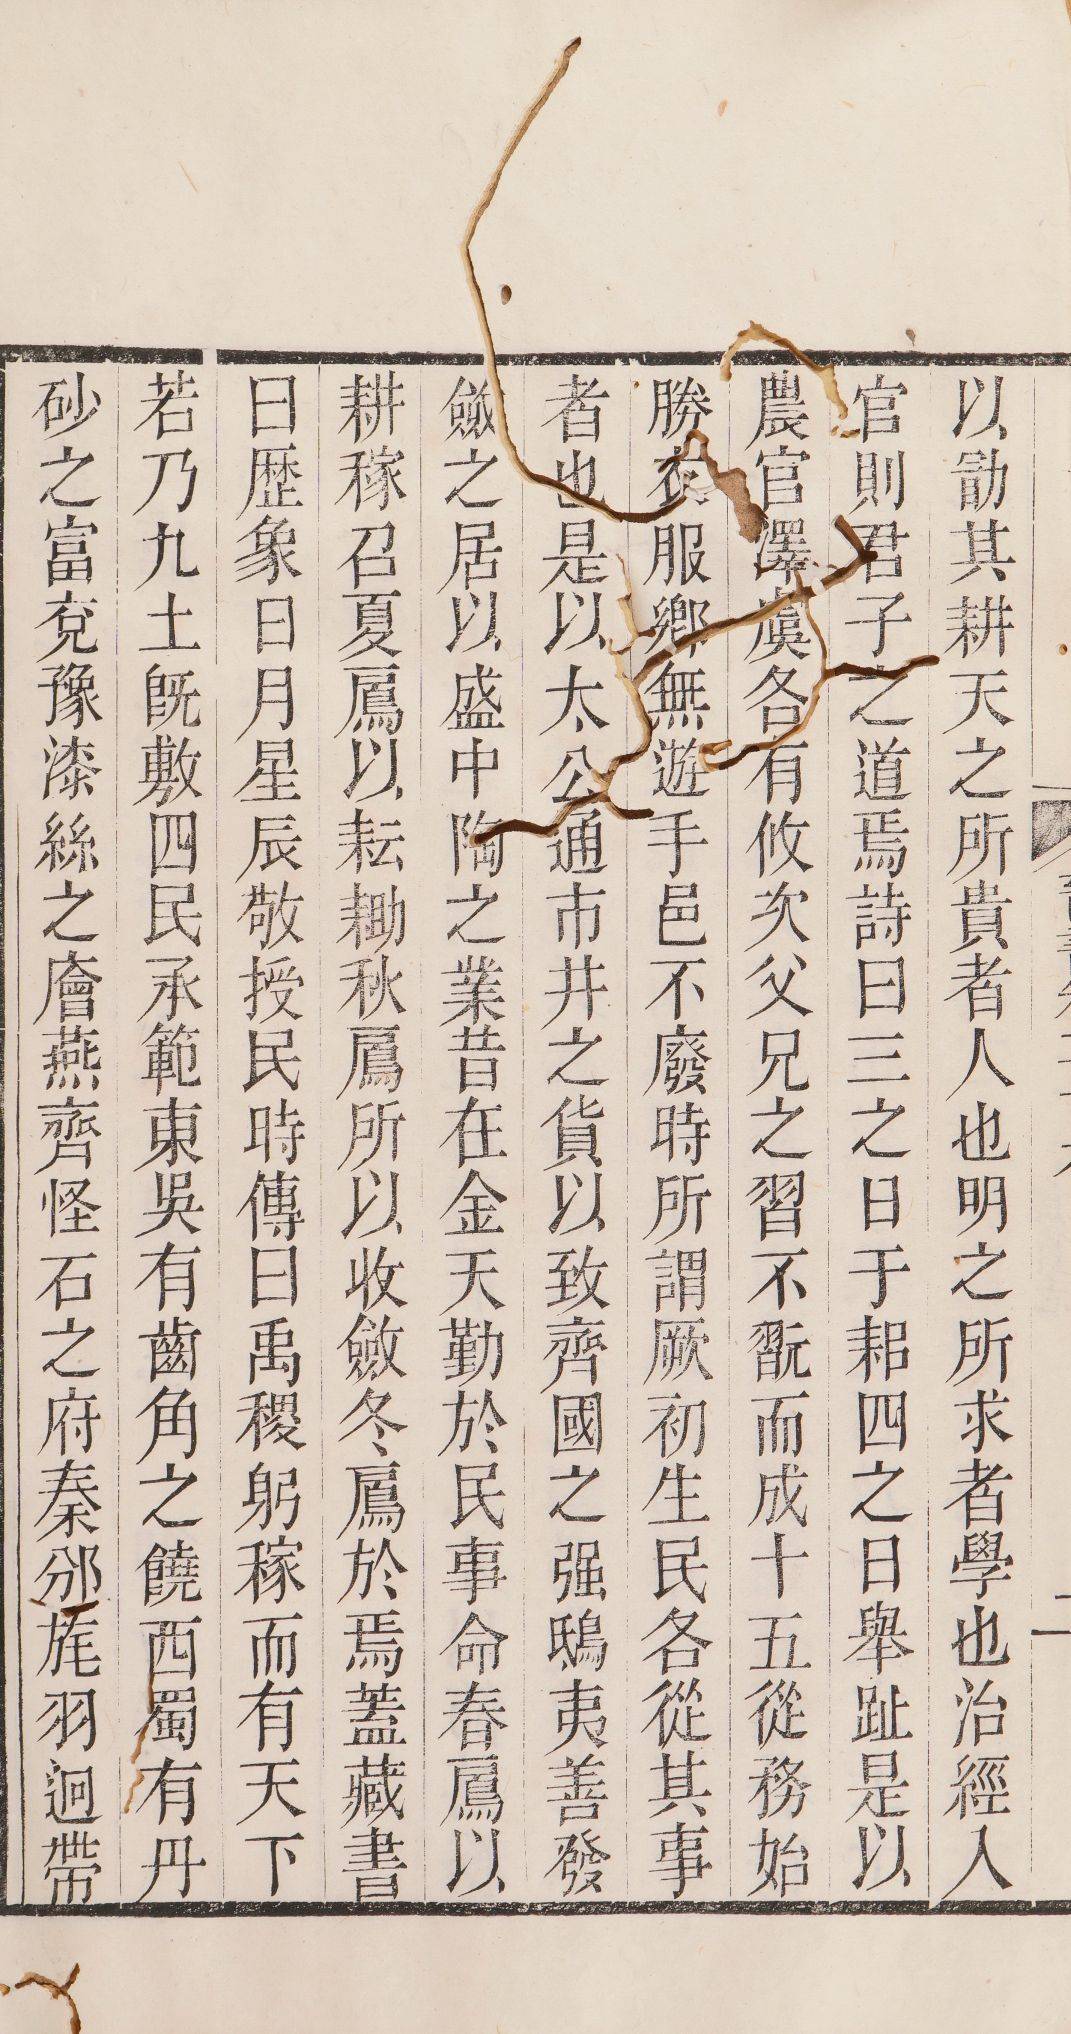 以勖其耕天之所貴者人也明之所求者學也治經入
官則君子之道焉詩曰三之日于耜四之日舉趾是以
農官澤虞各有攸次父兄之習不翫而成十五從務始
勝衣服鄉無遊手邑不廢時所謂厥初生民各從其事
者也是以太公通市井之貨以致齊國之强鴟夷善發
斂之居以盛中陶之業昔在金天勤於民事命春鳸以
耕稼召夏鳸以耘耡秋鳸所以收斂冬鳸於焉蓋藏書
曰歷象日月星辰敬授民時傳曰禹稷躬稼而有天下
若乃九土旣敷四民承範東吳有齒角之饒西蜀有丹
砂之富兗豫漆絲之廥燕齊怪石之府秦邠旄羽迥帶